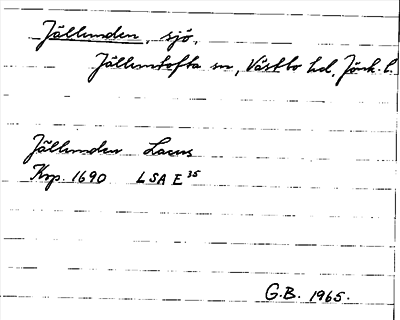 Jällunden, sjö,
Jälluntofta sn, Västbo hd, Jönk. l.
Jällunden Lacus
Krp. 1690 LSA E 35
G.B. 1965.